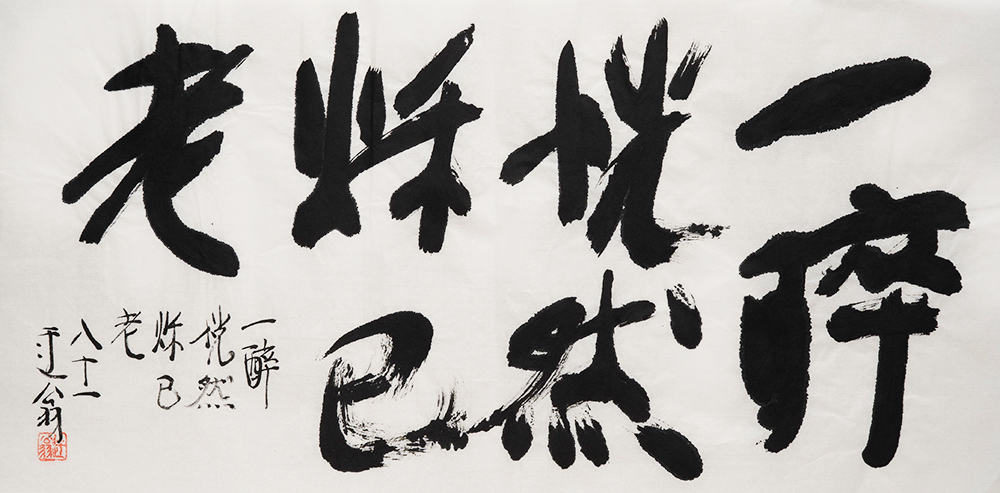 一醉
恍然
秌已
老
一醉
恍然
秌已
老
八十一
迂翁